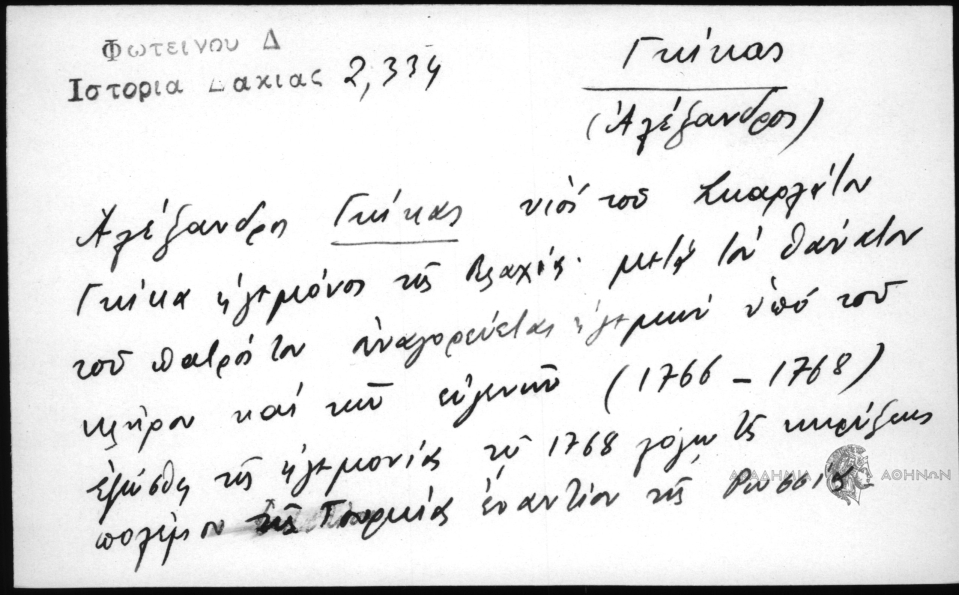 Φωτεινου Δ
Ιστορια Δακιας 2,334
Γκίκας
(Ἀλέξανδρος)
Ἀλέξανδρος Γκίκας υἱὸς τοῦ Σκαρλάτου
Γκίκα ἡγεμόνος τῆς Βλαχίας. μετὰ τὸν θάνατον
τοῦ πατρός του ἀναγορεύεται ἡγεμὼν ὑπὸ τοῦ
κλήρου καὶ τῶν εὐγενῶν (1766 – 1768)
ἐξώσθη τῆς ἡγεμονίας τῷ 1768 λόγῳ τῆς κηρύξεως
πολέμου τῆς Τουρκίας ἐναντίον τῆς Ρωσσίας
ΑΚΑΔΗΜΙΑ ΑΘΗΝΩΝ